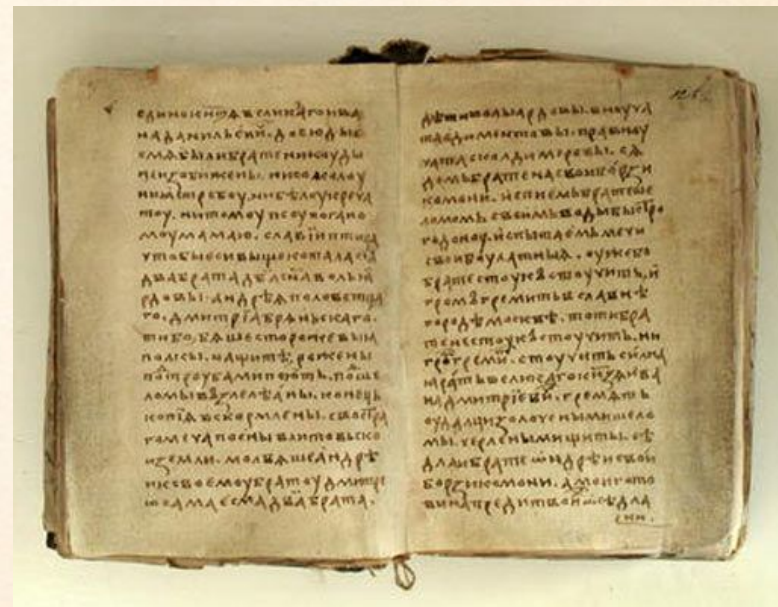 единокн҃ѕѧвеликагоива
наданильеви҇ . довюдые
смѧбылибратеникуды
неизобижены . нисоколоу
ниꙗстребоу . нибѣлоукречѧ
тоу . нитомоупсоупогано
моумамаю . славїиптица
чтобыесивыщекоталасїа
двабратадвасн҃аволыа
рдовы . андрѣꙗполоветца
го . дмитрїабрѧньскаго .
тибо, бѧшесторожевыꙗ
полкы . нащитѣ, рожены
по҇троубамипоють . по҇ше
ломывъзлелѣаны . конець
копїавъскормлены . своострa
гомечапоенывлитовьско
иземли . молвѧшеандрѣ
иксвоемоубратоудмитре
ѡсамаесмадвабрата .
126
дѣтивольардовы . вноучѧ
таедиментовы . правноу
чѧтасколдимеровы . сѧ
демьбратенасвоиборзи
комони . испиемьбратеше
ломомьсвоимьводыбыстро
годоноу . испытаемьмечи
своибоулатныꙗ . оужебо
братестоукъстоучить . и
громъгремитьвславнѣ
городѣмосквѣ . тотибра
тенестоукъстоучить . ни
гро҇гремит҇ . стоучитьсилна
ꙗратьвеликагокн҃ѕѧива
надмитрїеви҇ . гремѧть
оудалцизолоченымишело
мы . черленымищиты . сѣ
длаибратеѡндрѣисвои
борзикомони . амоигото
винапредитвоиѡсѣдла
ени .